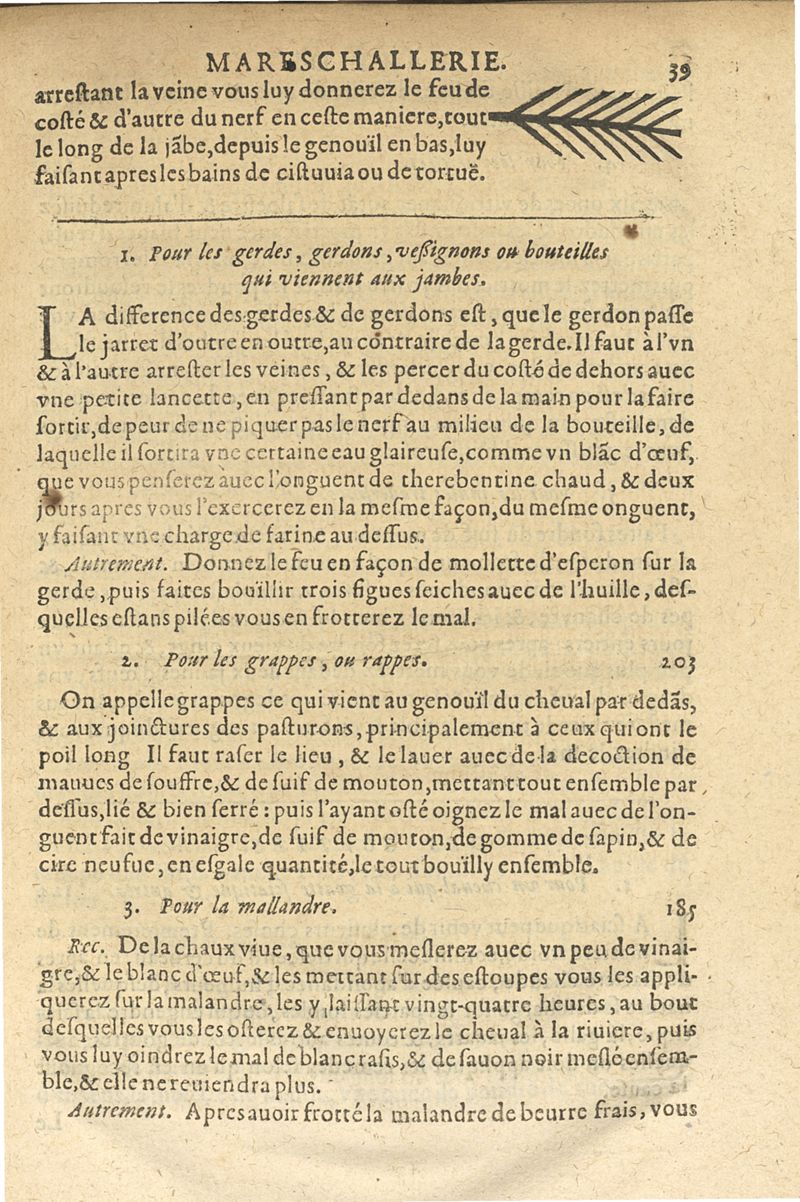 MARESCHALLERIE. 39
arreſtant la veine vous luy donnerez le feu de
coſté & d'autre du nerf en ceſte maniere, tout
le long de la jãbe, depuis le genoüil en bas, luy
faiſant apres les bains de ciſtuuia ou de tortuë.
1. Pour les gerdes, gerdons, veſsignons ou bouteilles
qui viennent aux jambes.
LA difference des gerdes & de gerdons eſt, que le gerdon paſſe
le jarret d'outre en outre, au contraire de la gerde. Il faut à l'vn
& à l'autre arreſter les veines, & les percer du coſté de dehors auec
vne petite lancette, en preſſant par dedans de la main pour la faire
ſortir, de peur de ne piquer pas le nerf au milieu de la bouteille, de
laquelle il ſortira vne certaine eau glaireuſe, comme vn blãc d'œuf,
que vous penſerez auec l'onguent de therebentine chaud, & deux
jours apres vous l'exercerez en la meſme façon, du meſme onguent,
y faiſant vne charge de farine au deſſus.
Autrement. Donnez le feu en façon de mollette d'eſperon ſur la
gerde, puis faites boüillir trois figues ſeiches auec de l'huille, deſ-
quelles eſtans pilées vous en frotterez le mal.
2. Pour les grappes, ou rappes. 203
On appelle grappes ce qui vient au genoüil du cheual par dedãs,
& aux joinctures des paſturons, principalement à ceux qui ont le
poil long Il faut raſer le lieu, & le lauer auec de la decoction de
mauues de ſouffre, & de ſuif de mouton, mettant tout enſemble par
deſſus, lié & bien ſerré : puis l'ayant oſté oignez le mal auec de l'on-
guent fait de vinaigre, de ſuif de mouton, de gomme de ſapin, & de
cire neufue, en eſgale quantité, le tout boüilly enſemble.
3. Pour la mallandre. 185
Rec. De la chaux viue, que vous meſlerez auec vn peu de vinai-
gre, & le blanc d'œuf, & les mettant ſur des eſtoupes vous les appli-
querez ſur la malandre, les y laiſſant vingt-quatre heures, au bout
deſquelles vous les oſterez & enuoyerez le cheual à la riuiere, puis
vous luy oindrez le mal de blanc raſis, & de ſauon noir meſlé enſem-
ble, & elle ne reuiendra plus.
Autrement. Apres auoir frotté la malandre de beurre frais, vous